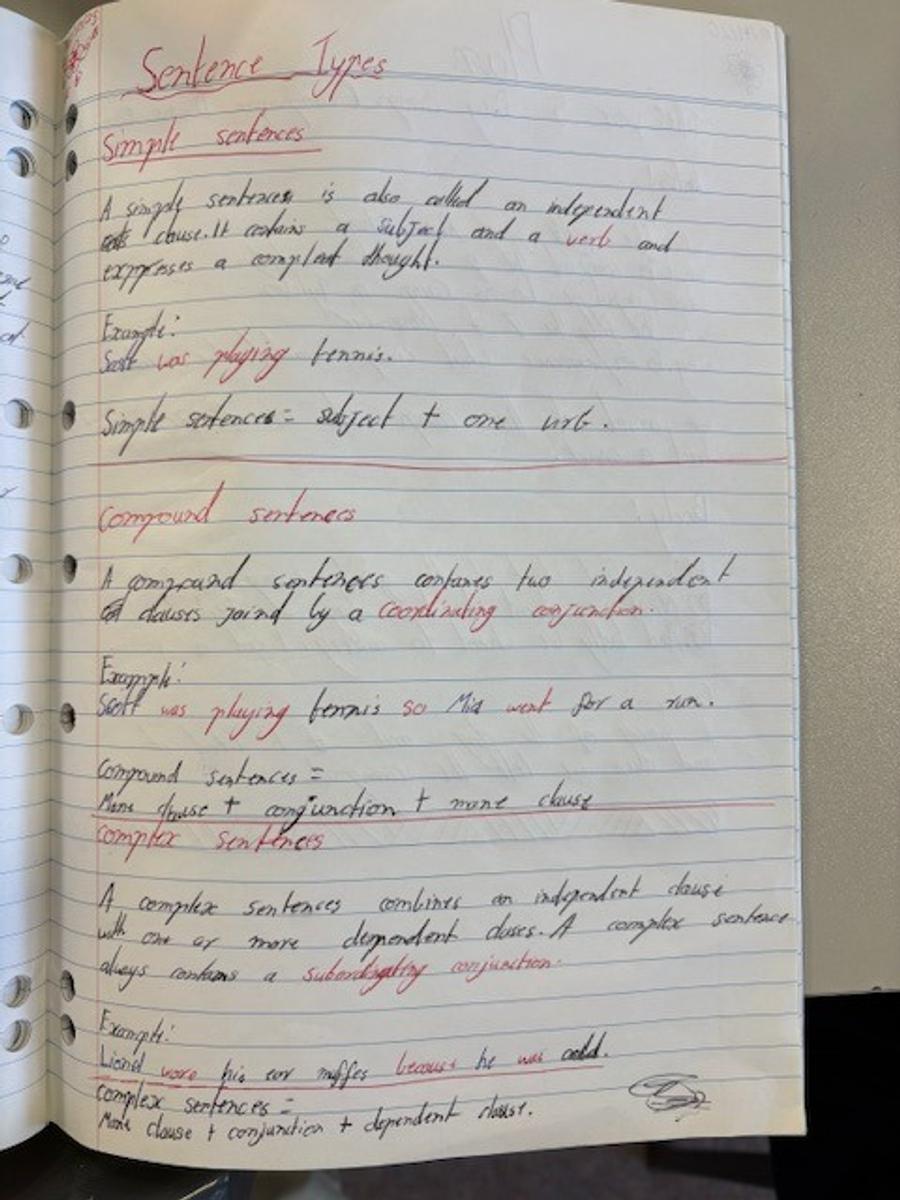 Sentence Types
Simple sentences
A simple sentences is also called an independent
clause. It contains a subject and a verb and
exppresses a compleat thought.
Example:
Scott was playing tennis.
Simple sentences = subject + one
Compound sentences
A compound sentences contanes two independent
clauses joind by a coordinating conjunction.
Example:
Scott was playing tennis so Mia went for a run.
Compound sentences =
Mane clause + conjunction + mane clause
Complex sentences
A complex sentences combines an independent clause
with one or more dependent cluses. A complex sentence
always contains a subordinating conjunction.
Example:
wore his ear muffes because he was cold.
Complex sentences =
Mane clause + conjunction + dependent clause.